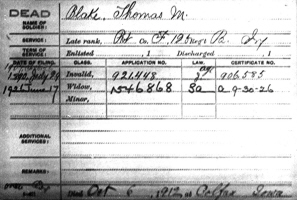 DEAD
NAME OF SOLDIER: Blake, Thomas M.
SERVICE: Late rank, Pvt Co. F, 19 Regt Pa. Inf
TERM OF SERVICE: Enlisted 1 Discharged 1
DATE OF FILING. CLASS. APPLICATION NO. LAW. CERTIFICATE NO.
July 29 Invalid, 921.448 906.585
1926 June 17 Widow, 1546868 a 9-30-26
Minor,
ADDITIONAL SERVICES:
REMARKS:
Died Oct 6, 1912 at Colfax Iowa